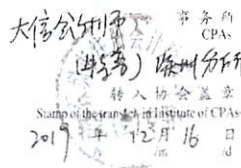 大信会计师 事务所
CPAs
(特殊普) 深圳分所
转入协会盖章
Stamp of the transfer-in Institute of CPAs
2019 年 12 月 16 日
/m /d